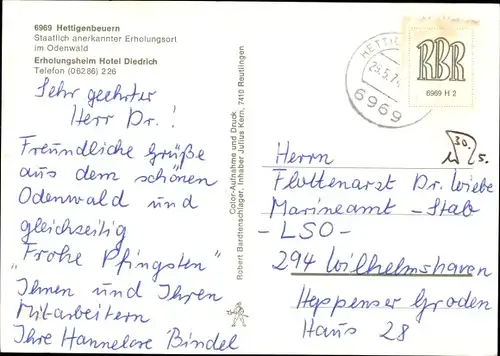 6969 Hettigenbeuern
Staatlich anerkannter Erholungsort
im Odenwald
Erholungsheim Hotel Diedrich
Telefon (06286) 226
Sehr geehrter
Herr Dr.!
Freundliche Grüße
aus dem schönen
Odenwald und
gleichzeitig
"Frohe Pfingsten"
Ihnen und Ihren
Mitarbeitern
Ihre Hannelore Bindel
Color-Aufnahme und Druck
Robert Bardtenschlager, Inhaber Julius Kern, 7410 Reutlingen
6969
RBR
6969 H 2
30.
5.
Herrn
Flottenarzt Dr. Wiebe
Marineamt - Stab
- LSO -
294 Wilhelmshaven
Heppenser Groden
Haus 28